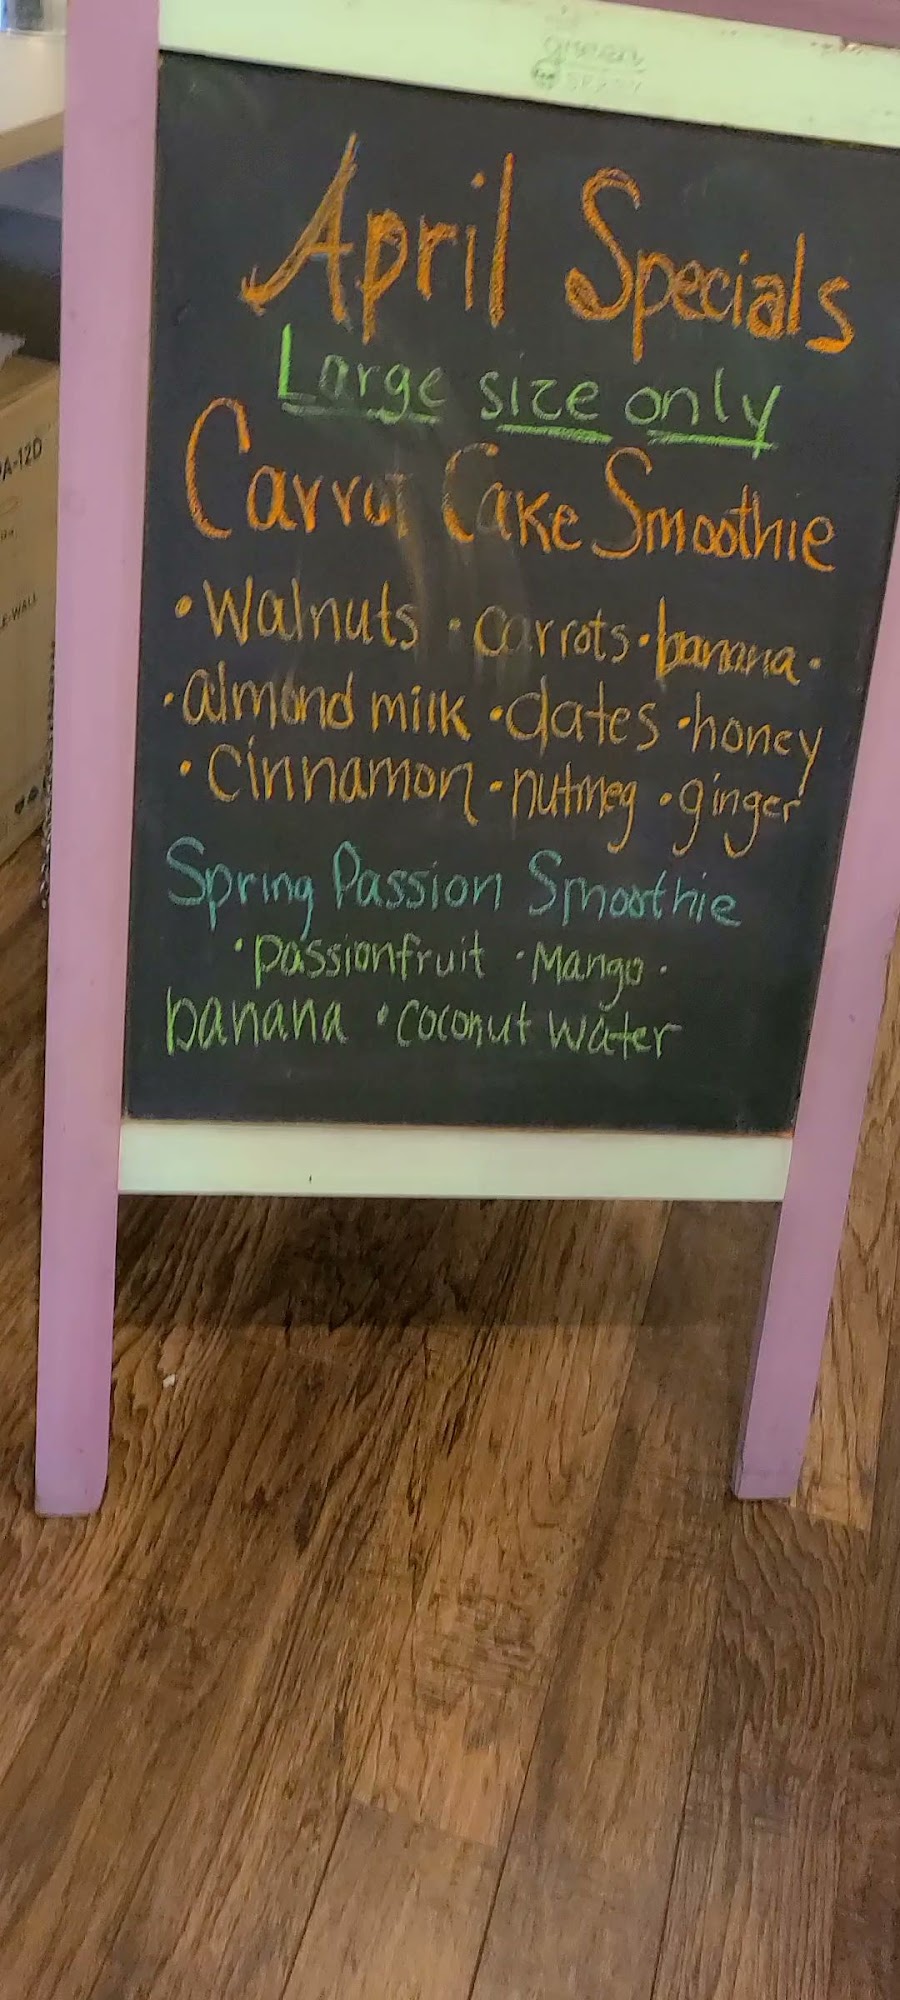 green
April Specials
Large size only
Carrot Cake Smoothie
• Walnuts • carrots • banana •
• almond milk • dates • honey
• cinnamon • nutmeg • ginger
Spring Passion Smoothie
• passionfruit • Mango •
banana • coconut water
A-12D
E-WALL